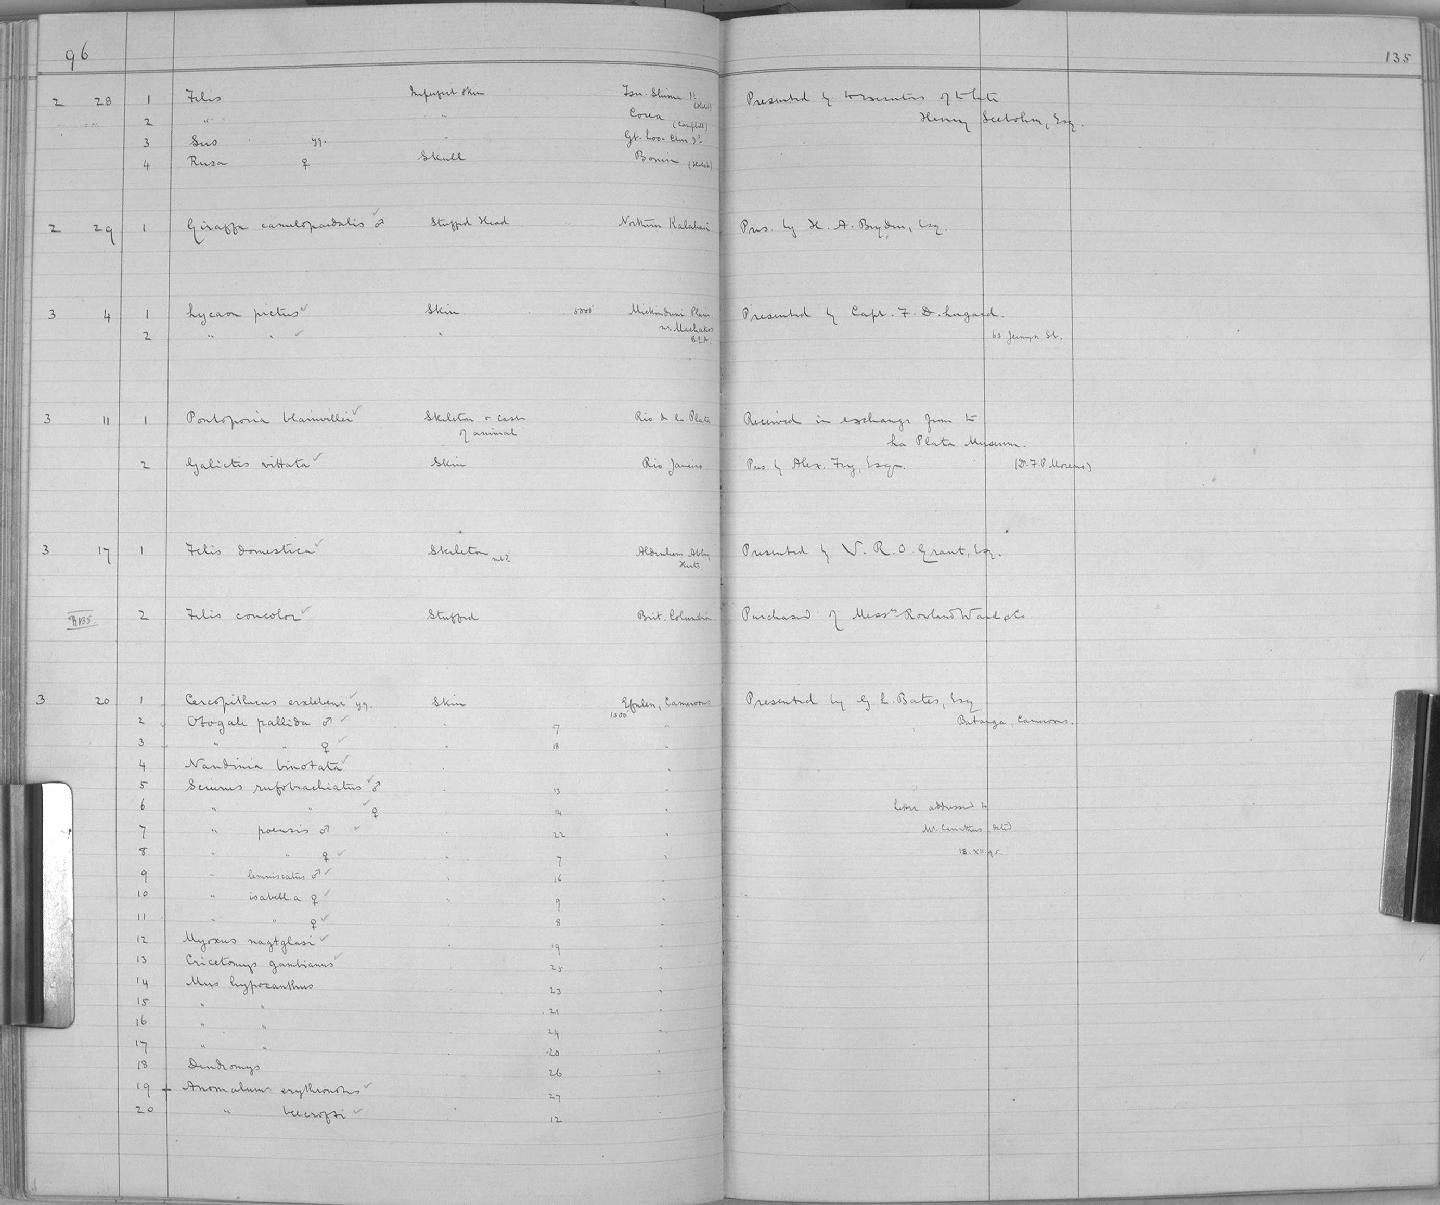 96
135
2 28 1 Felis Imperfect Skin Tsu-Shima Is. (Holst) Presented by the executors of the late
2 " " Corea (Campbell) Henry Seebohm, Esq.
3 Sus yg. Gt. Loo-Choo Is.
4 Rusa ♀ Skull Bonin (Holst)
2 29 1 Giraffa camelopardalis ♂ Stuffed Head Northern Kalahari Pres. by H. A. Bryden, Esq.
3 4 1 Lycaon pictus Skin 5000' Plain Presented by Capt. F. D. Lugard.
2 " " " nr. Machakos B.E.A. 60 Jermyn St.
3 11 1 Pontoporia blainvillei Skeleton & cast Rio de la Plata Received in exchange from the
of animal La Plata Museum.
2 Galictis vittata Skin Rio Janeiro Pres. by Alex. Fry, Esqre. (Dr. F. P. Moreno)
3 17 1 Felis domestica Skeleton Aldenham Abbey Presented by W. R. O. Grant, Esq.
Herts
2 Felis concolor Stuffed Brit. Columbia Purchased of Messrs Rowland Ward & Co
3 20 1 Cercopithecus erxlebeni yg. Skin Efulen, Cameroons Presented by G. L. Bates, Esq
2 Otogale pallida ♂ " 17 1500' " Batanga, Cameroons.
3 " " ♀ " 18 "
4 Nandinia binotata " "
5 Sciurus rufobrachiatus ♂ 13 "
6 " " ♀ 14 " Letter addressed to
7 " poensis ♂ " 22 "
8 " " ♀ " 7 " 18.XII.95.
9 " lemniscatus ♂ " 16 "
10 " isabella ♀ " 9 "
11 " " ♀ 8 "
12 Myoxus nagtglasi " 19 "
13 Cricetomys gambianus " 25 "
14 Mus hypoxanthus " 23 "
15 " " " 21 "
16 " " " 24 "
17 " " " 20 "
18 Dendromys " 26 "
19 + Anomalurus erythronotus 27 "
20 " beecrofti " 12 "